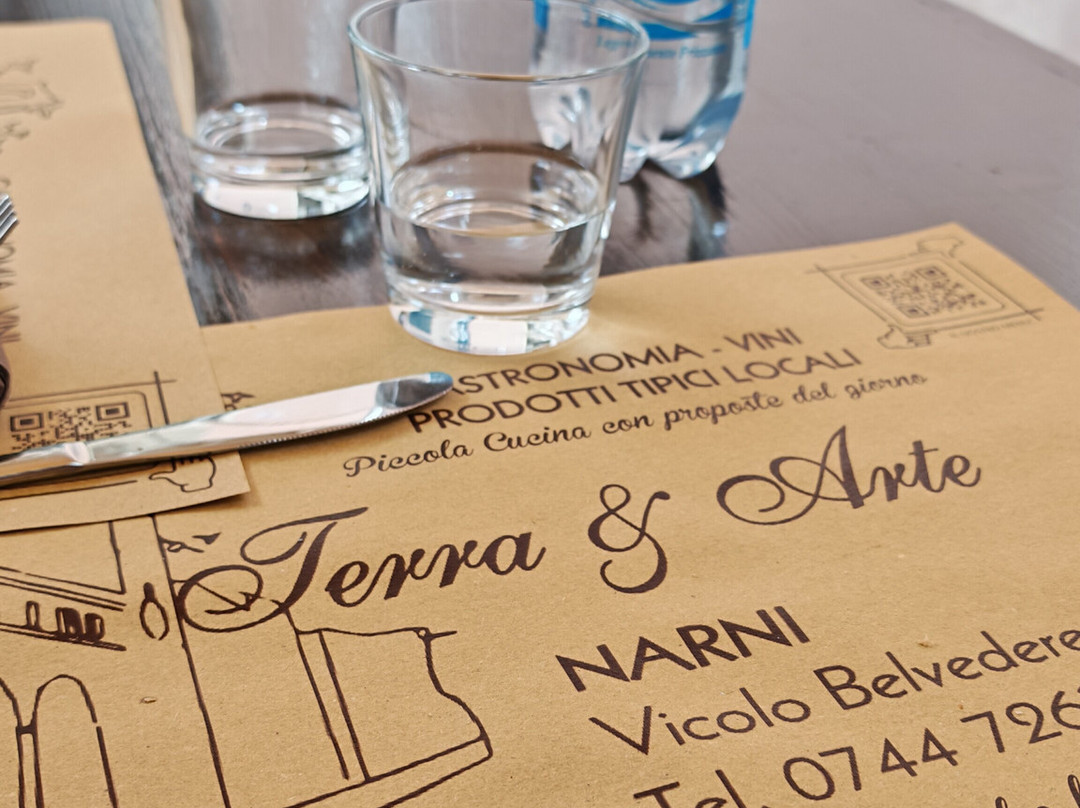 ASTRONOMIA - VINI
PRODOTTI TIPICI LOCALI
Piccola Cucina con proposte del giorno
Terra & Arte
NARNI
Vicolo Belvedere
Tel. 0744 726